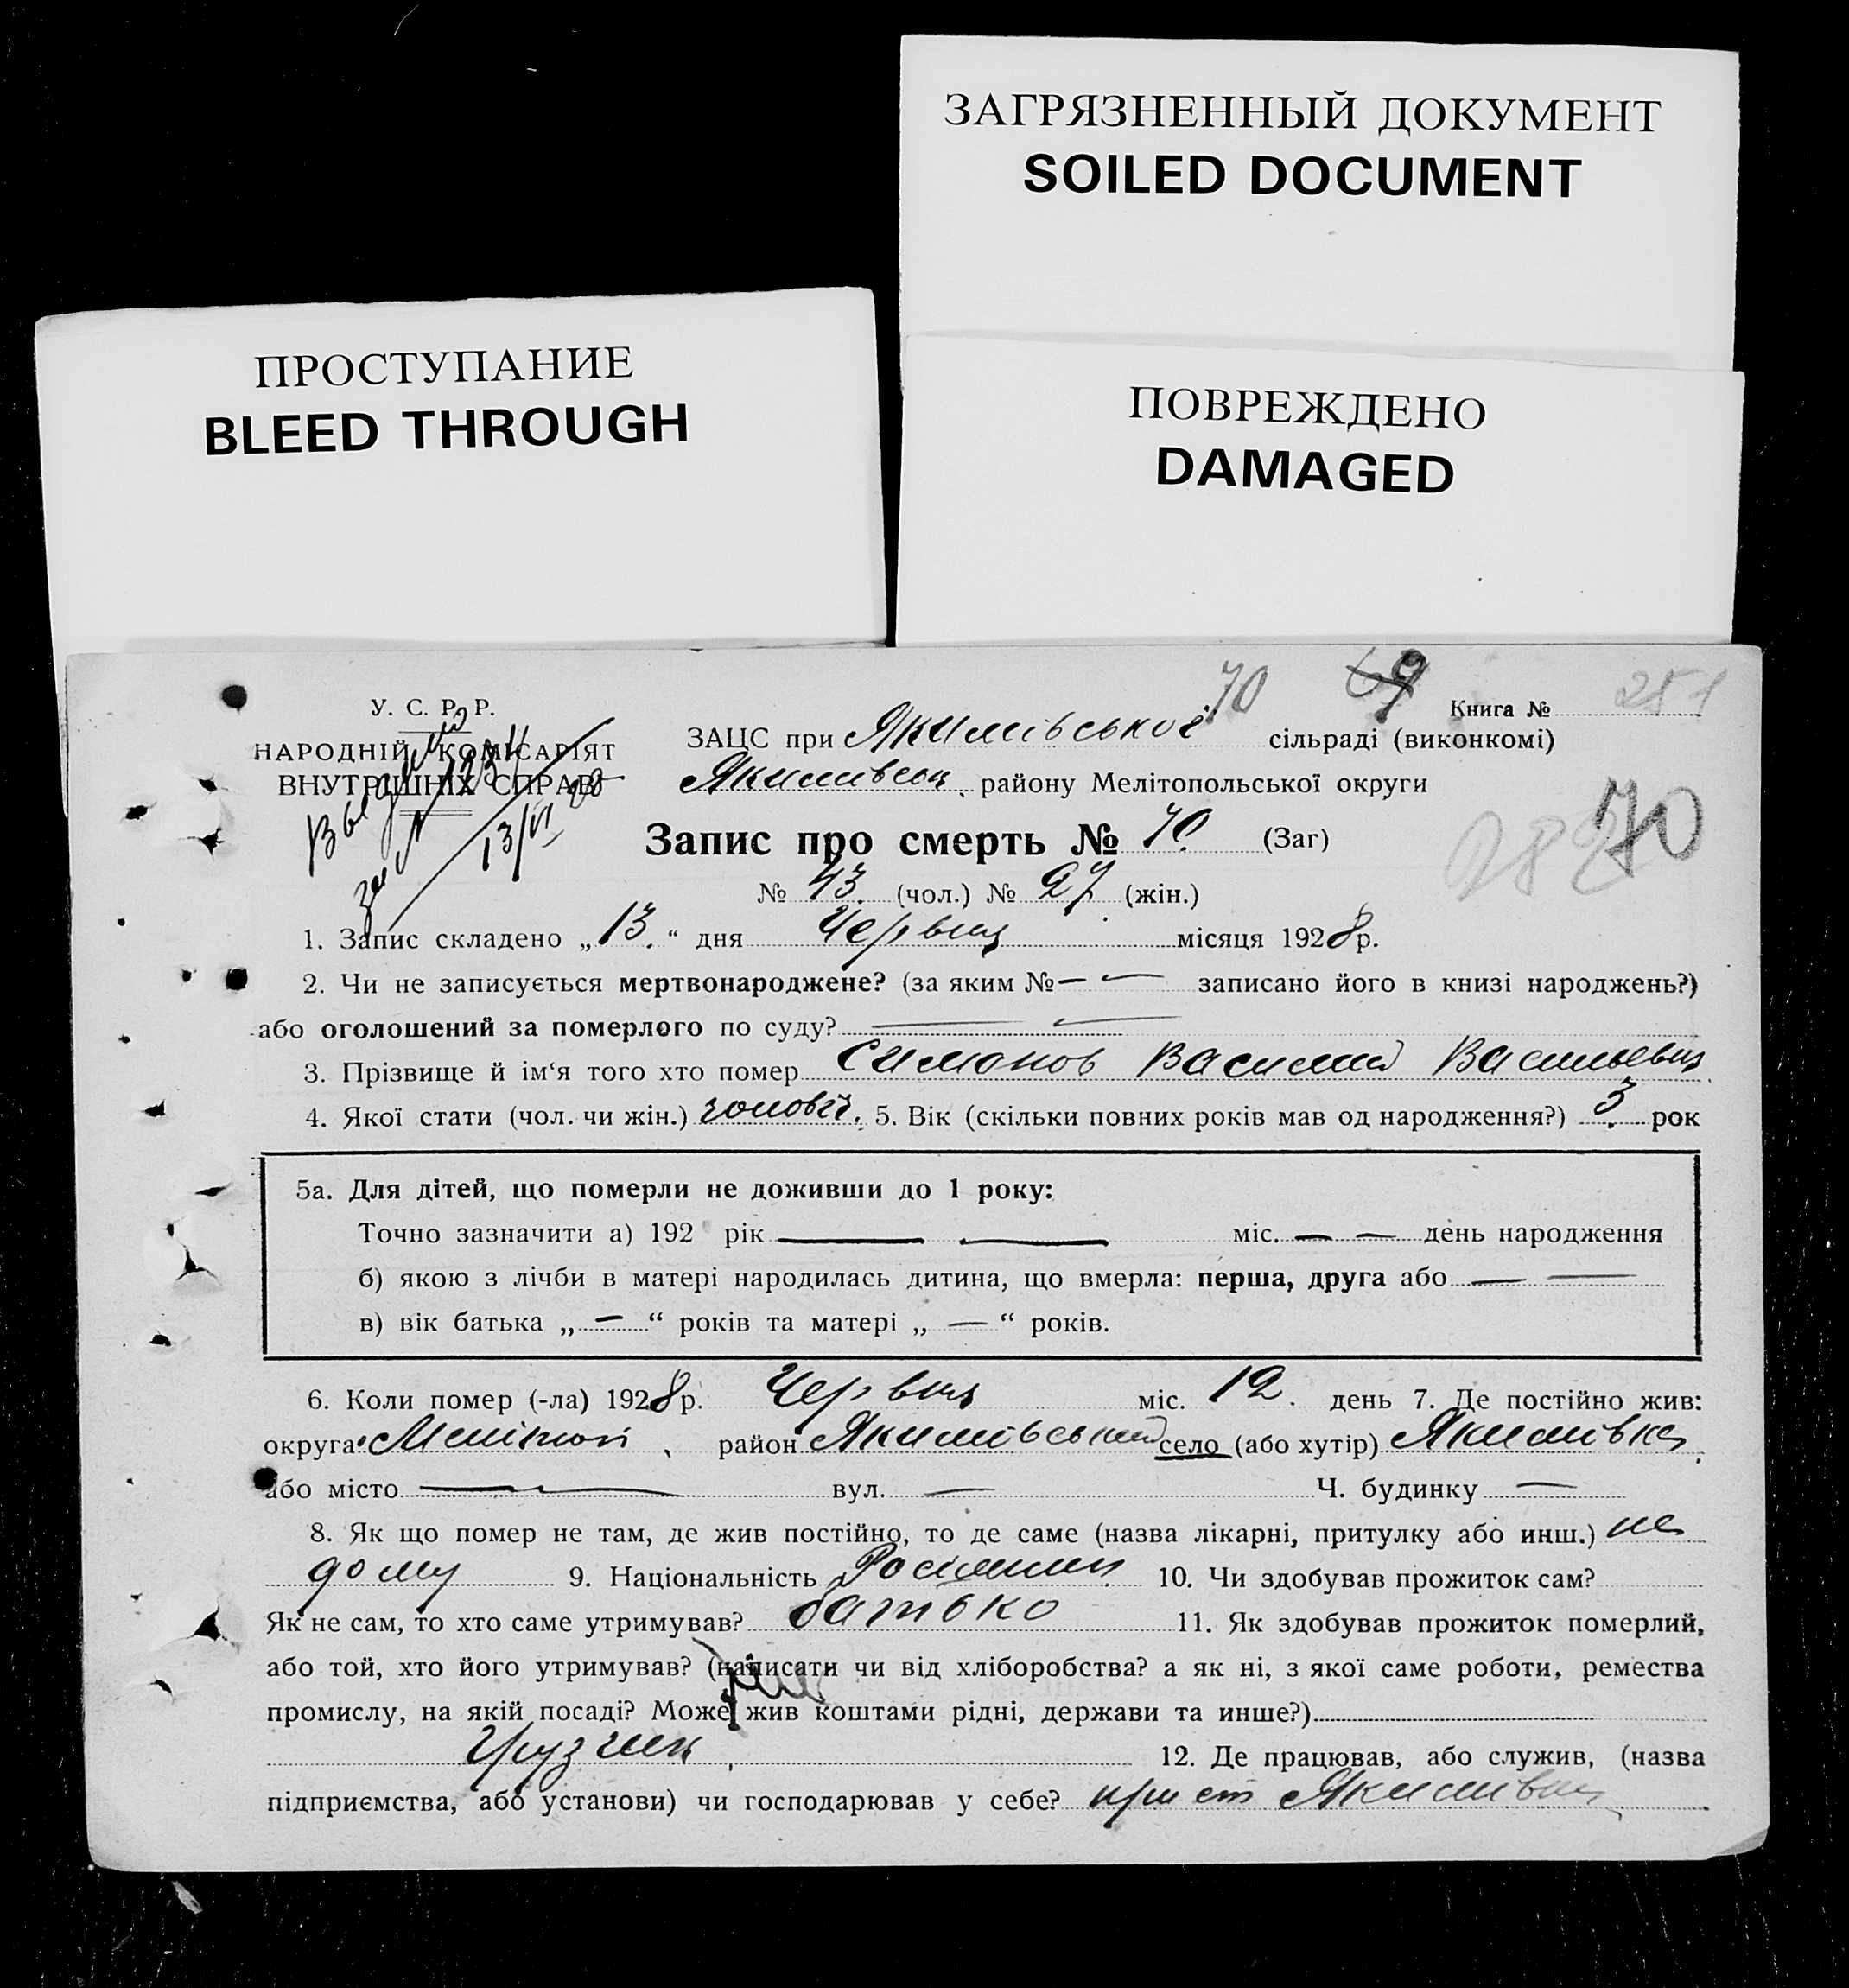 ЗАГРЯЗНЕННЫЙ ДОКУМЕНТ
SOILED DOCUMENT
ПРОСТУПАНИЕ
BLEED THROUGH
ПОВРЕЖДЕНО
DAMAGED
70 69 Книга № 251
У. С. Р. Р.
НАРОДНІЙ КОМІСАРІЯТ
ВНУТРІШНІХ СПРАВ
13/VI
ЗАЦС при Якимівської сільраді (виконкомі)
Якимівськ. району Мелітопольської округи
70
Запис про смерть № 70. (Заг)
№ 43. (чол.) № 27 (жін.)
1. Запис складено „13.“ дня Червця місяця 1928р.
2. Чи не записується мертвонароджене? (за яким №— — записано його в книзі народжень?)
або оголошений за померлого по суду? — —
3. Прізвище й ім‘я того хто помер Симонов Василий Васильевич
4. Якої стати (чол. чи жін.) чоловіч. 5. Вік (скільки повних років мав од народження?) 3 рок
5а. Для дітей, що померли не доживши до 1 року:
Точно зазначити а) 192 рік — — міс. — — день народження
б) якою з лічби в матері народилась дитина, що вмерла: перша, друга або — —
в) вік батька „ — “ років та матері „ — “ років.
6. Коли помер (-ла) 1928р. Червця міс. 12. день 7. Де постійно жив:
округа Мелітоп район Якимівський село (або хутір) Якимівка
або місто — вул. — Ч. будинку —
8. Як що помер не там, де жив постійно, то де саме (назва лікарні, притулку або инш.)
дому 9. Національність Росіянин 10. Чи здобував прожиток сам?
Як не сам, то хто саме утримував? батько 11. Як здобував прожиток померлий,
або той, хто його утримував? (написати чи від хліборобства? а як ні, з якої саме роботи, ремества
промислу, на якій посаді? Може жив коштами рідні, держави та инше?)
Грузчик 12. Де працював, або служив, (назва
підприємства, або установи) чи господарював у себе?